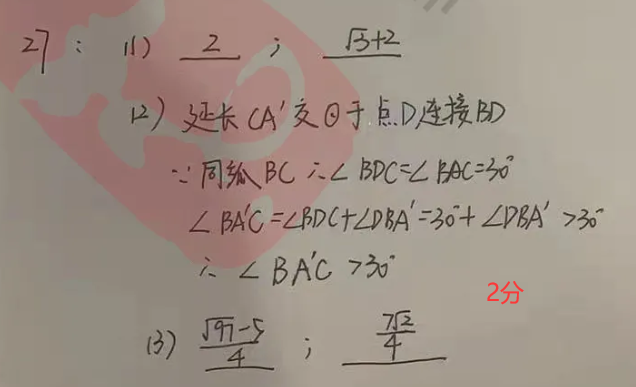 27: (1) 2 ; √3+2
(2) 延长CA'交⊙于点D连接BD
∵同弧BC ∴∠BDC=∠BAC=30°
∠BA'C=∠BDC+∠DBA'=30°+∠DBA'>30°
∴∠BA'C>30°
2分
(3) (√97-5)/4 ; 7√2/4